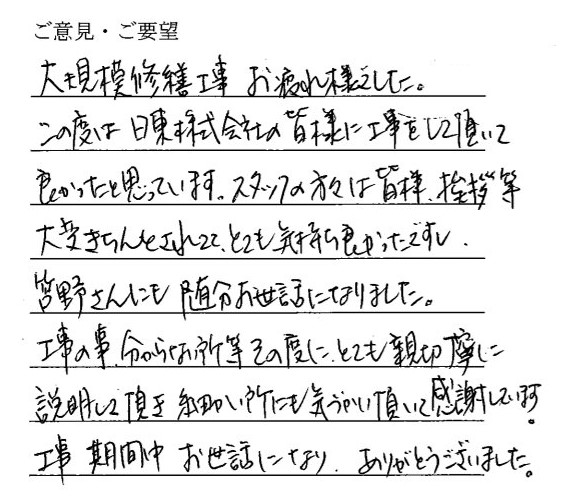 ご意見・ご要望
大規模修繕工事 お疲れ様でした。
この度は 日東株式会社の皆様に工事をして頂いて
良かったと思っています。スタッフの方々は皆様、挨拶等
大変きちんとされてて、とても気持ち良かったですし、
菅野さんにも 随分お世話になりました。
工事の事、分からない所等その度に、とても親切丁寧に
説明して頂き 細かい所にも気づかい頂いて感謝しています。
工事期間中 お世話になり、ありがとうございました。